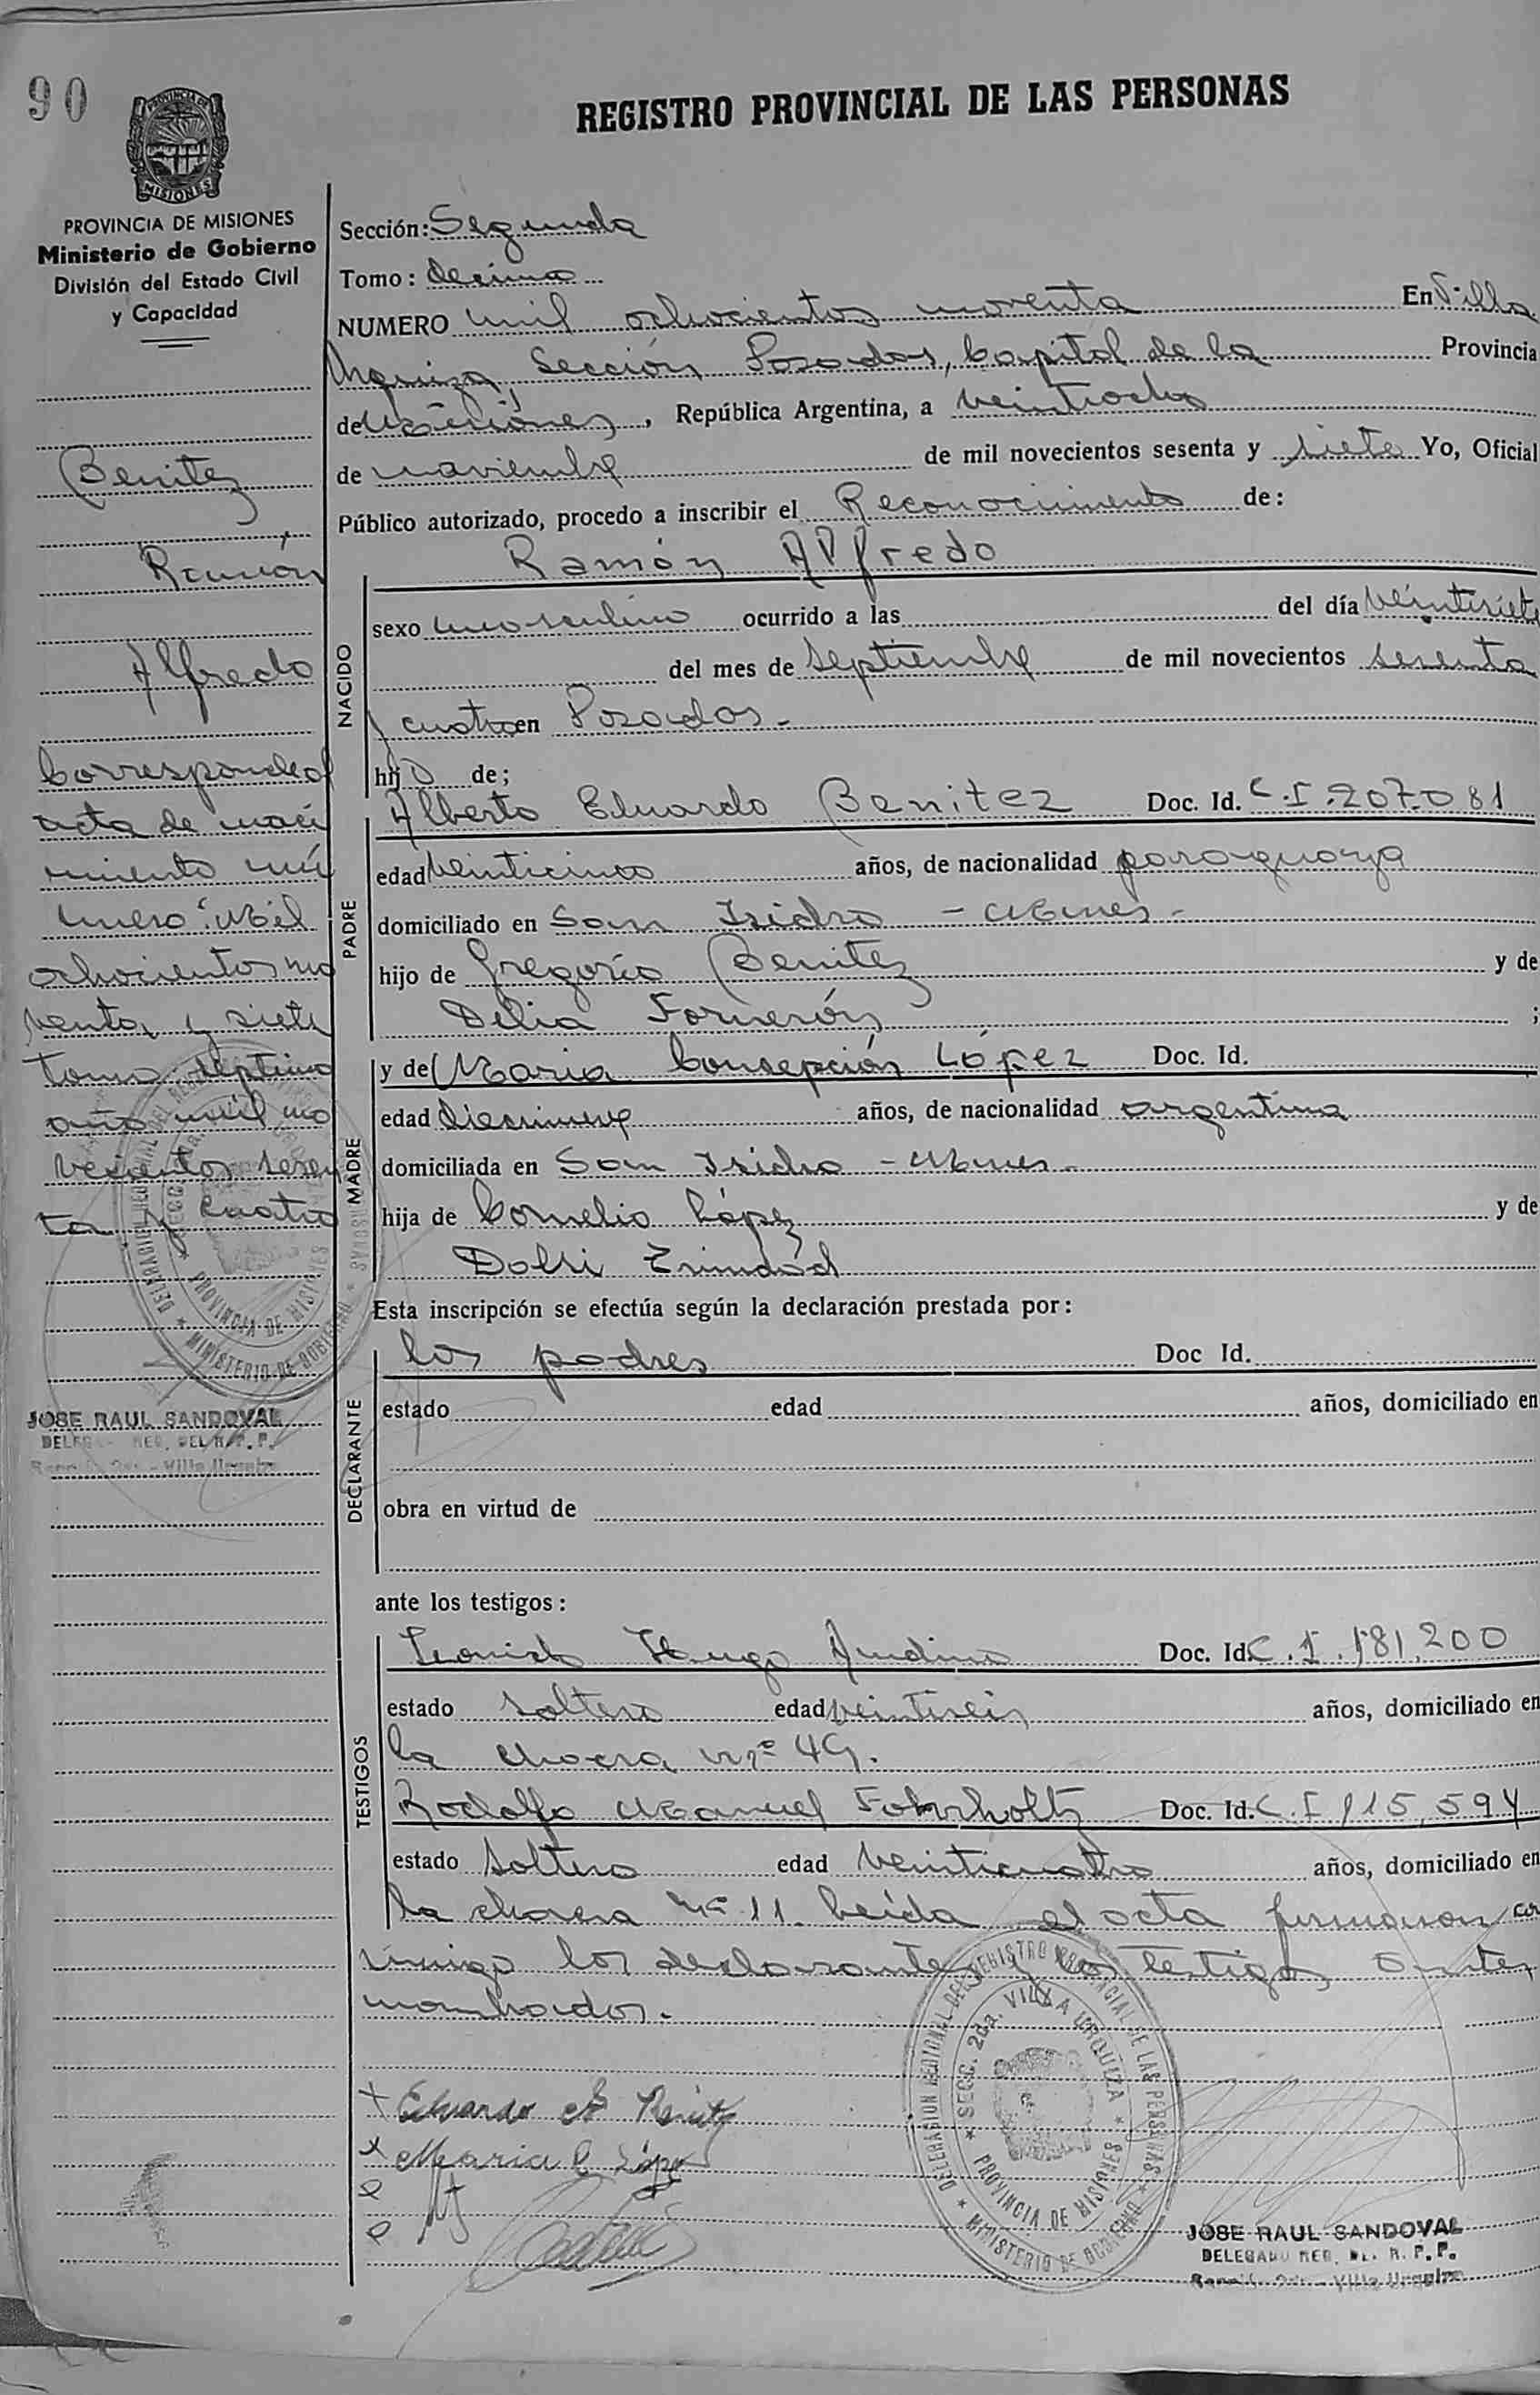 90
REGISTRO PROVINCIAL DE LAS PERSONAS
PROVINCIA DE
MISIONES
PROVINCIA DE MISIONES
Ministerio de Gobierno
División del Estado Civil
y Capacidad
Benitez
Ramón
Alfredo
Corresponde al
acta de naci
miento nú
mero: Mil
ochocientos no
venta y siete
tomo septimo
año mil no
vecientos sesen
ta y cuatro
JOSE RAUL SANDOVAL
Sección: Segunda
Tomo: decimo
NUMERO mil ochocientos noventa En Villa
Urquiza, Sección Posadas, Capital de la Provincia
de Misiones, República Argentina, a veintiocho
de noviembre de mil novecientos sesenta y siete Yo, Oficial
Público autorizado, procedo a inscribir el Reconocimiento de:
Ramón Alfredo
NACIDO
sexo masculino ocurrido a las del día veintisiete
del mes de septiembre de mil novecientos sesenta
y cuatro en Posadas.-
hijo de;
PADRE
Alberto Eduardo Benitez Doc. Id. C.I. 207.081
edad veinticinco años, de nacionalidad paraguaya
domiciliado en San Isidro - Mnes -
hijo de Gregorio Benitez y de
Delia Fornerón ;
MADRE
y de Maria Consepción López Doc. Id.
edad diecinueve años, de nacionalidad argentina
domiciliada en San Isidro - Mnes -
hija de Cornelio López y de
Dolli Trinidad
Esta inscripción se efectúa según la declaración prestada por:
DECLARANTE
los padres Doc Id.
estado edad años, domiciliado en
obra en virtud de
ante los testigos:
TESTIGOS
Hugo Doc. Id. C.I. 181.200
estado soltero edad veintiseis años, domiciliado en
la chacra nº 49.
Rodolfo Manuel Doc. Id. C.I. 115.594
estado soltero edad veinticuatro años, domiciliado en
la chacra nº 11. Leída el acta firmaron con
migo los declarantes y los testigos antes
nombrados.-
Eduardo A Benitez
Maria C López
DELEGACION REGIONAL DEL REGISTRO PROVINCIAL DE LAS PERSONAS
SECC. 2da. VILLA URQUIZA
PROVINCIA DE MISIONES
MINISTERIO DE GOBIERNO
JOSE RAUL SANDOVAL
DELEGADO REG. DEL R. P. P.
Sección 2da. - Villa Urquiza